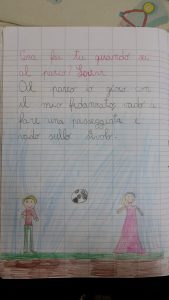 Cosa fai tu quando sei
al parco? Scrivi
Al parco io gioco con
il mio fidanzato vado a
fare una passeggiata e
vado sullo scivolo.